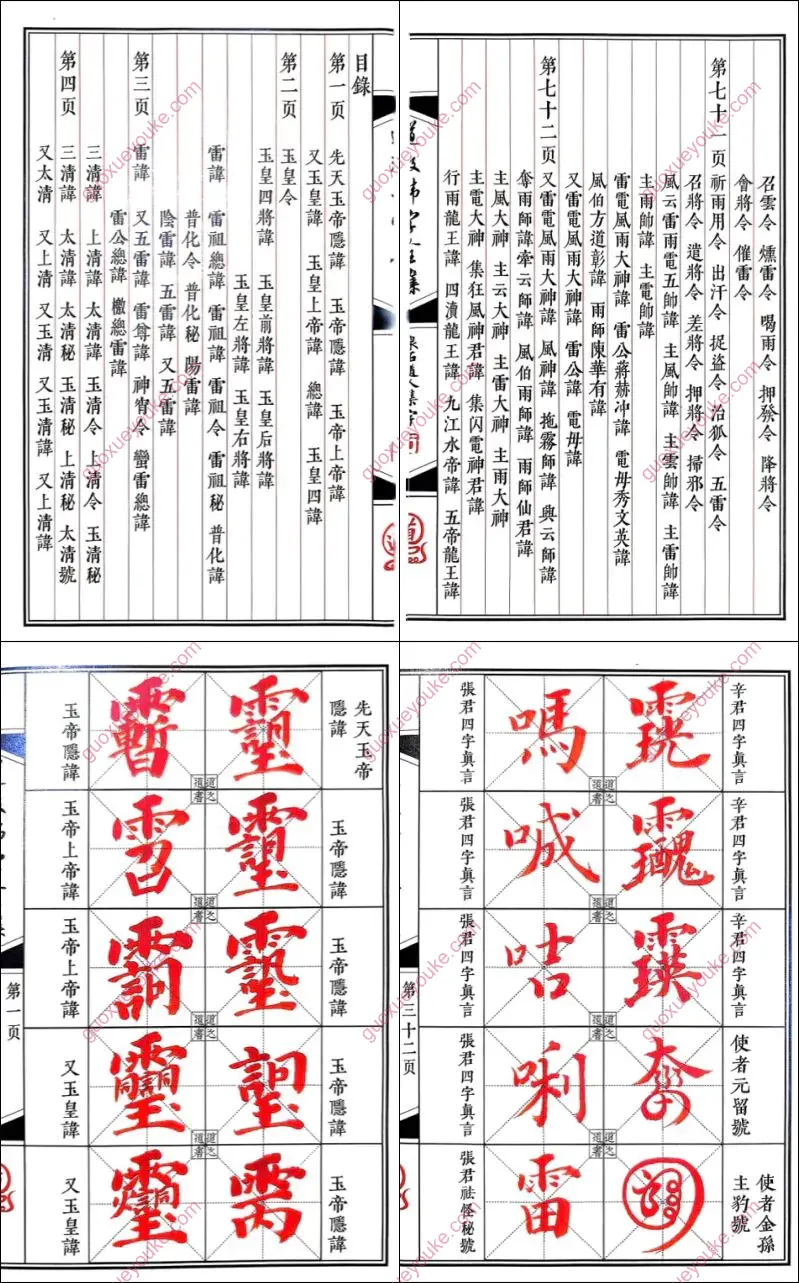 目錄
第一页 先天玉帝隱諱 玉帝隱諱 玉帝上帝諱
又玉皇諱 玉皇上帝諱 總諱 玉皇四諱
第二页 玉皇令
玉皇四將諱 玉皇前將諱 玉皇后將諱
玉皇左將諱 玉皇右將諱
雷諱 雷祖總諱 雷祖諱 雷祖令 雷祖秘 普化諱
普化令 普化秘 陽雷諱
陰雷諱 五雷諱 又五雷諱
第三页 雷諱 又五雷諱 雷尊諱 神霄令 蠻雷總諱
雷公總諱 檄總雷諱
三清諱 上清諱 太清諱 玉清令 上清令 玉清秘
第四页 三清諱 太清諱 太清秘 玉清秘 上清秘 太清號
又太清 又上清 又玉清 又玉清諱 又上清諱
召雲令 燻雷令 喝雨令 押發令 降將令
會將令 催雷令
第七十一页 祈雨用令 出汗令 捉盜令 治狐令 五雷令
召將令 遣將令 差將令 押將令 掃邪令
風云雷雨電五帥諱 主風帥諱 主雲帥諱 主雷帥諱
主雨帥諱 主電帥諱
雷電風雨大神諱 雷公蔣赫冲諱 電毋秀文英諱
風伯方道彰諱 雨師陳華有諱
又雷電風雨大神諱 雷公諱 電毋諱
第七十二页 又雷電風雨大神諱 風神諱 拖霧師諱 與云師諱
奪雨師諱 牽云師諱 風伯雨師諱 雨師仙君諱
主風大神 主云大神 主雷大神 主雨大神
主電大神 集狂風神君諱 集闪電神君諱
行雨龍王諱 四瀆龍王諱 九江水帝諱 五帝龍王諱
先天玉帝隱諱
玉帝隱諱
玉帝隱諱
玉帝隱諱
玉帝隱諱
玉帝隱諱
玉帝上帝諱
玉帝上帝諱
又玉皇諱
又玉皇諱
第一页
辛君四字真言
辛君四字真言
辛君四字真言
使者元留號
使者金孫主豹號
嗎
喊
咭
唎
雷
張君四字真言
張君四字真言
張君四字真言
張君四字真言
張君祛怪秘號
第三十二页
guoxueyouke.com